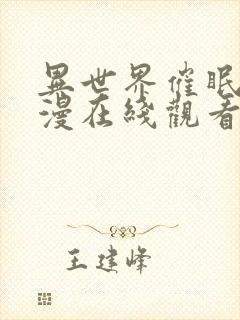 異世界催眠
漫在綫觀看
王建峰